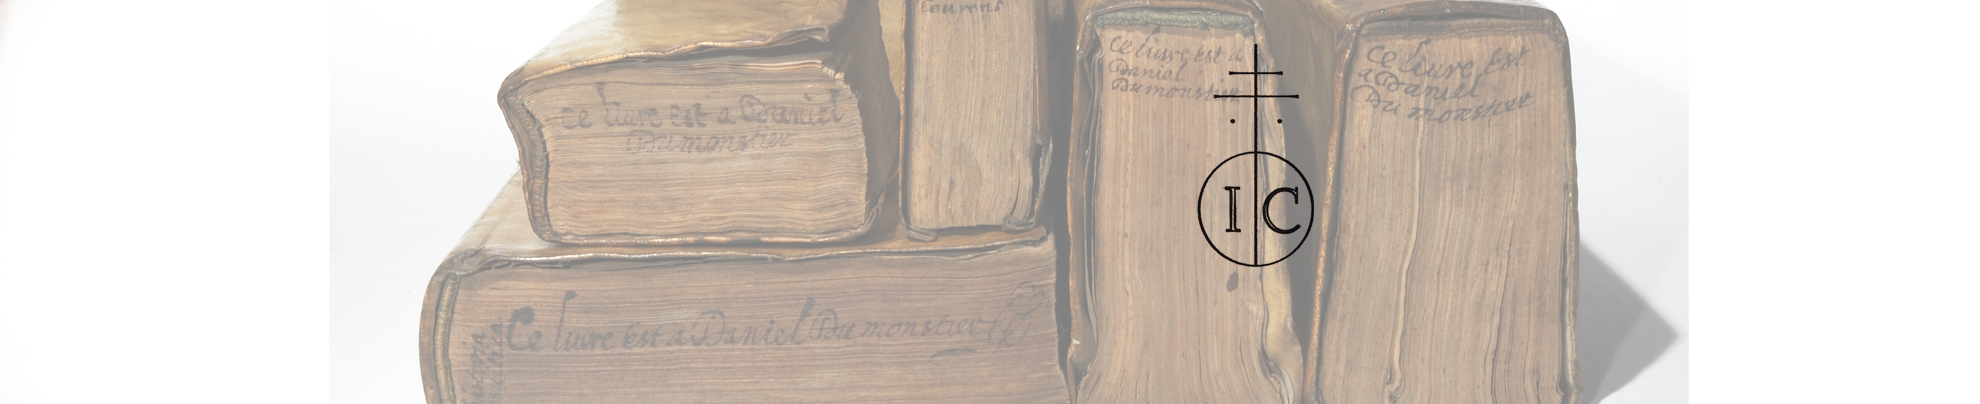 Laurens
Ce liure est a Daniel
Du monstier
Ce liure est a
Daniel
Du monstier
Ce liure Est
a Daniel
Du monstier
I C
Ce liure est a Daniel Du monstier